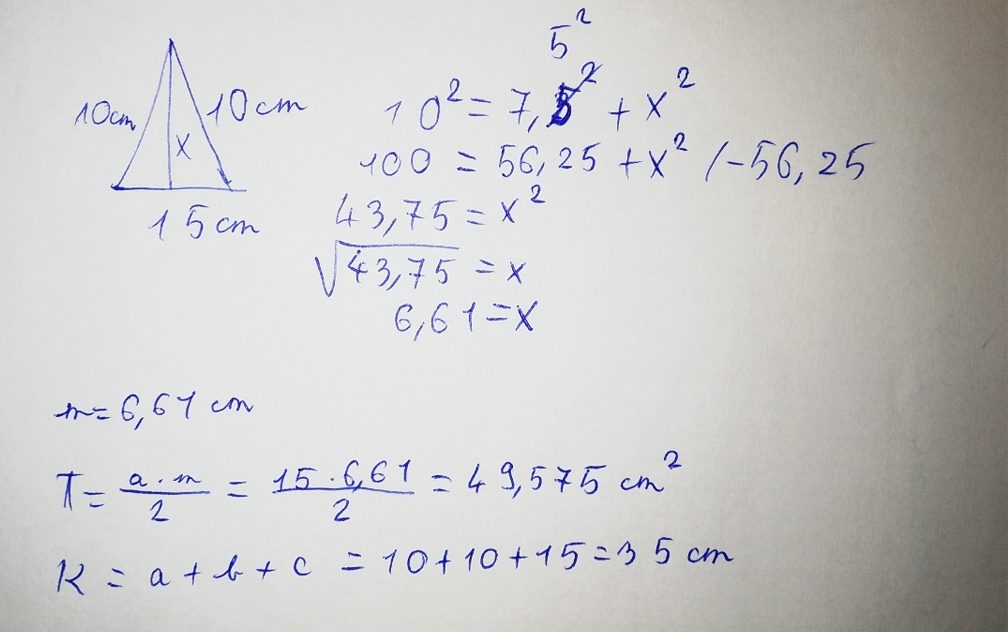 5²
10cm 10cm 10² = 7,5² + x²
x 100 = 56,25 + x² /-56,25
15cm 43,75 = x²
√43,75 = x
6,61 = x
m = 6,61 cm
T = a·m/2 = 15·6,61/2 = 49,575 cm²
K = a + b + c = 10 + 10 + 15 = 35 cm